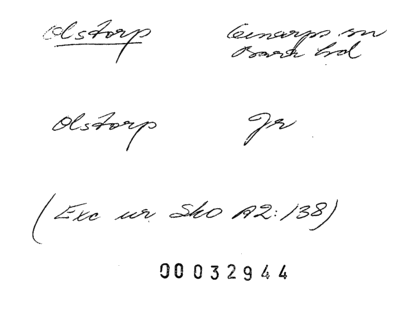 Olstorp Genarps sn
Bara hd
Olstorp Jr
(Exc ur Sko A2:138)
00032944